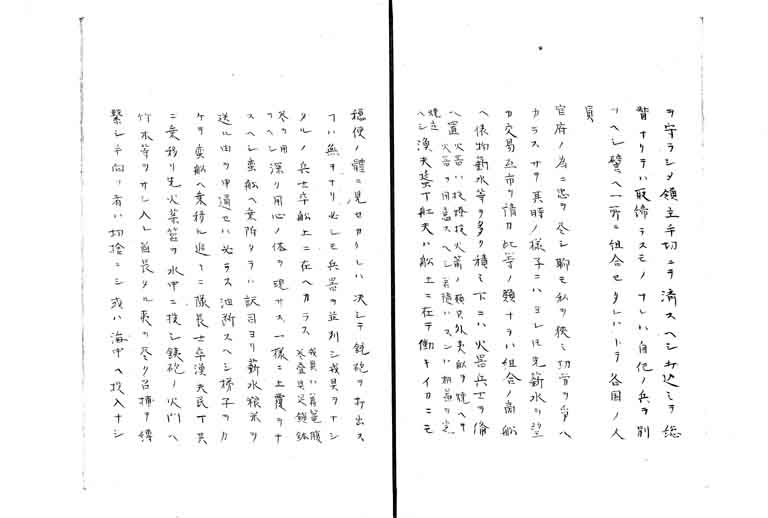 ヲ守ラシメ領主手切ニテ済スヘシ打込ミテ総
督ナクテハ取締ラスモノナレハ自他ノ兵ヲ別
ツヘシ譬ヘ一所ニ組合セタレハトテ各国ノ人
員
官府ノ為ニ忠ヲ尽シ聊モ私ヲ挟ミ功労ヲ争ヘ
カラスサテ其時ノ様子ニハヨレ圧先薪水ヲ望
カ交易互市ヲ請カ此等ノ類ナラハ組合ノ商船
ヘ俵物薪水等ヲ多ク積ミ下ニハ火器兵士ヲ備
ヘ置 火器ハ投擲投火箭ノ類又外夷船ヲ焼ヘキ
火器ヲ用意スヘシ
焼立
ヘシ漁夫並丁壮夫ハ船上ニ在テ働キイカニモ
穏便ノ體ニ見セカクレハ決シテ銃砲ヲ打出ス
丁ハ無ヲナリ必シモ兵器ヲ並列シ戎具ヲナシ
タルノ兵士卒船上ニ在ヘカラス 戎具ハ
ヘシ深ク用心ノ体ヲ現サス一様ニ上覆ヲナ
スヘシ蛮船ヘ乗附タラハ訳司ヨリ薪水糧米ヲ
送ル由ヲ申過セハ必ラス油断スヘシ梯子ヲカ
ケヲ蛮船ヘ乗移ル迄ニ隊長士卒漁夫民丁共
ニ乗移リ先火薬筥ヲ水中ニ投シ銕砲ノ火門ヘ
竹木等ヲサシ入レ酋長タル夷ヲ尽ク召捕リ縛
繋シ手向フ者ハ切捨ニシ或ハ海中ヘ投入ナシ